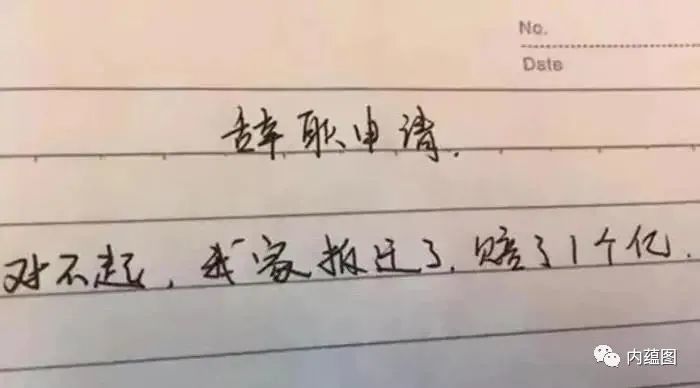 No.
Date
辞职申请.
对不起，我家搬迁了，赔了1个亿.
内蕴图